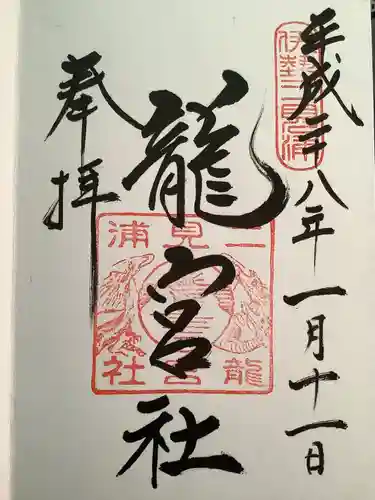 平成二十八年一月十一日
伊勢二見浦
龍宮社
奉拝
二見浦
龍宮社